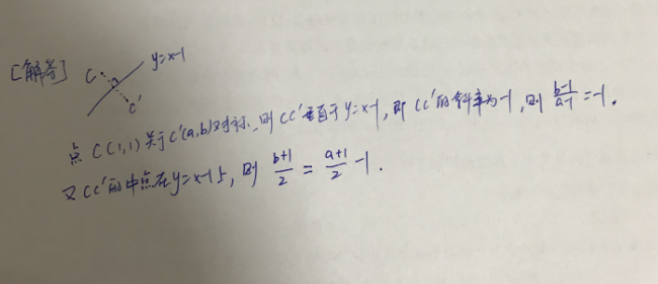 [解答]
C
y=x-1
C'
点C(1,1)关于C'(a,b)对称,则CC'垂直于y=x-1,即CC'的斜率为-1,则 \frac{b-1}{a-1}=-1.
又CC'的中点在y=x-1上,则 \frac{b+1}{2}=\frac{a+1}{2}-1.